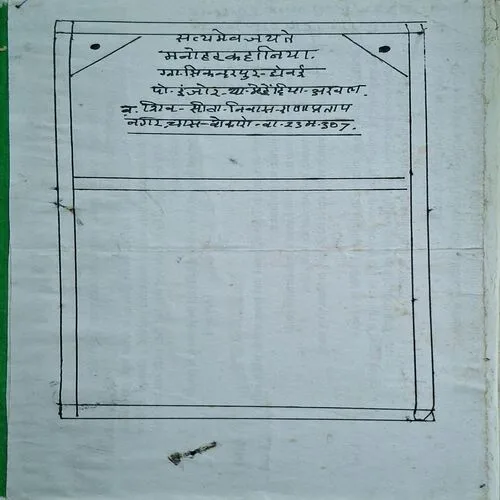 सत्यमेव जयते
मनोहर कहानिया.
ग्रा-सिकन्दरपुर-टोनई
पो-इंजोर-था-मेहेंदिया-अरवल.
व. ब्रिज-सीता-निवास-राणा प्रताप
नगर, चास-बोकारो-वा-23म-307.